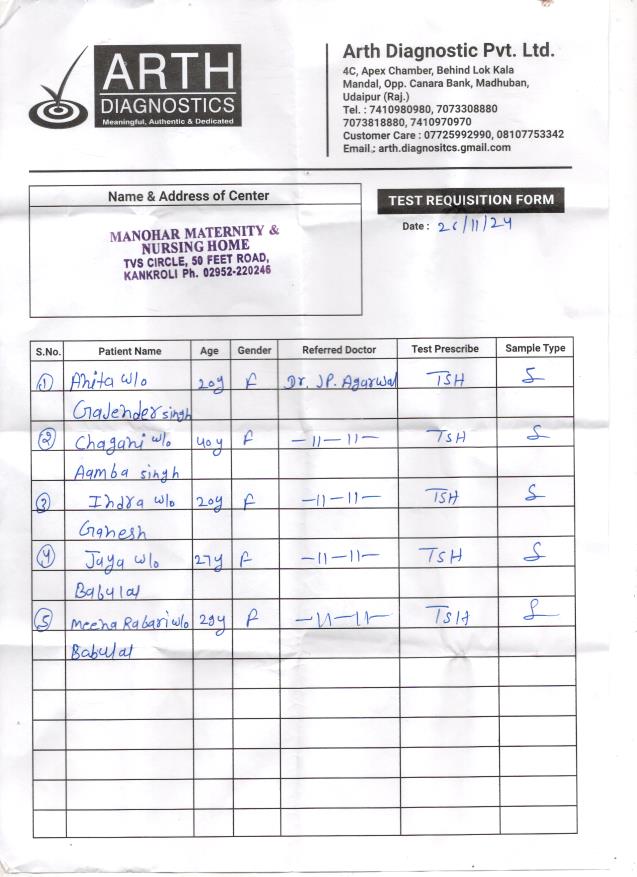 ARTH
DIAGNOSTICS
Meaningful, Authentic & Dedicated
Arth Diagnostic Pvt. Ltd.
4C, Apex Chamber, Behind Lok Kala
Mandal, Opp. Canara Bank, Madhuban,
Udaipur (Raj.)
Tel. : 7410980980, 7073308880
7073818880, 7410970970
Customer Care : 07725992990, 08107753342
Email.: arth.diagnositcs.gmail.com
Name & Address of Center
MANOHAR MATERNITY &
NURSING HOME
TVS CIRCLE, 50 FEET ROAD,
KANKROLI Ph. 02952-220246
TEST REQUISITION FORM
Date : 26/11/24
S.No. Patient Name Age Gender Referred Doctor Test Prescribe Sample Type
1 Anita w/o 20y F Dr. JP. Agarwal TSH S
Gajender singh
2 Chagani w/o 40y F -11-11- TSH S
Aamba singh
3 Indra w/o 20y F -11-11- TSH S
Ganesh
4 Jaya w/o 27y F -11-11- TSH S
Babulal
5 Meena Rabari w/o 29y F -11-11- TSH S
Babulal